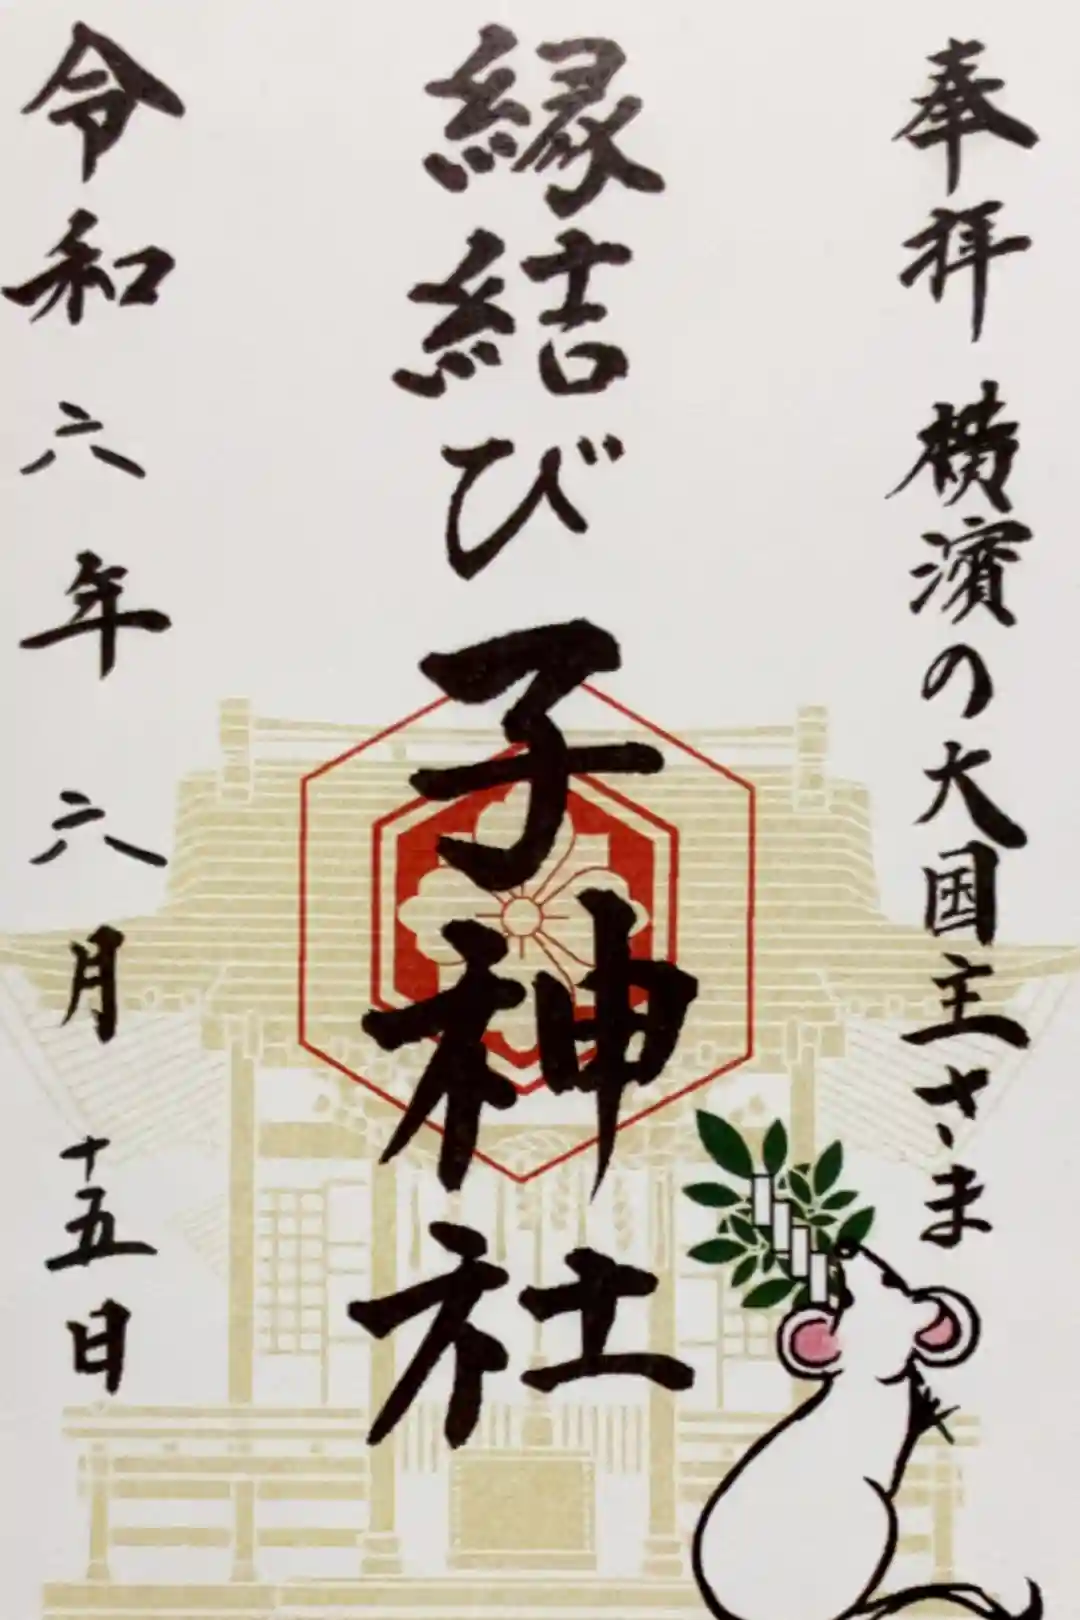 奉拝 横濱の大国主さま
縁結び 子神社
令和六年六月十五日